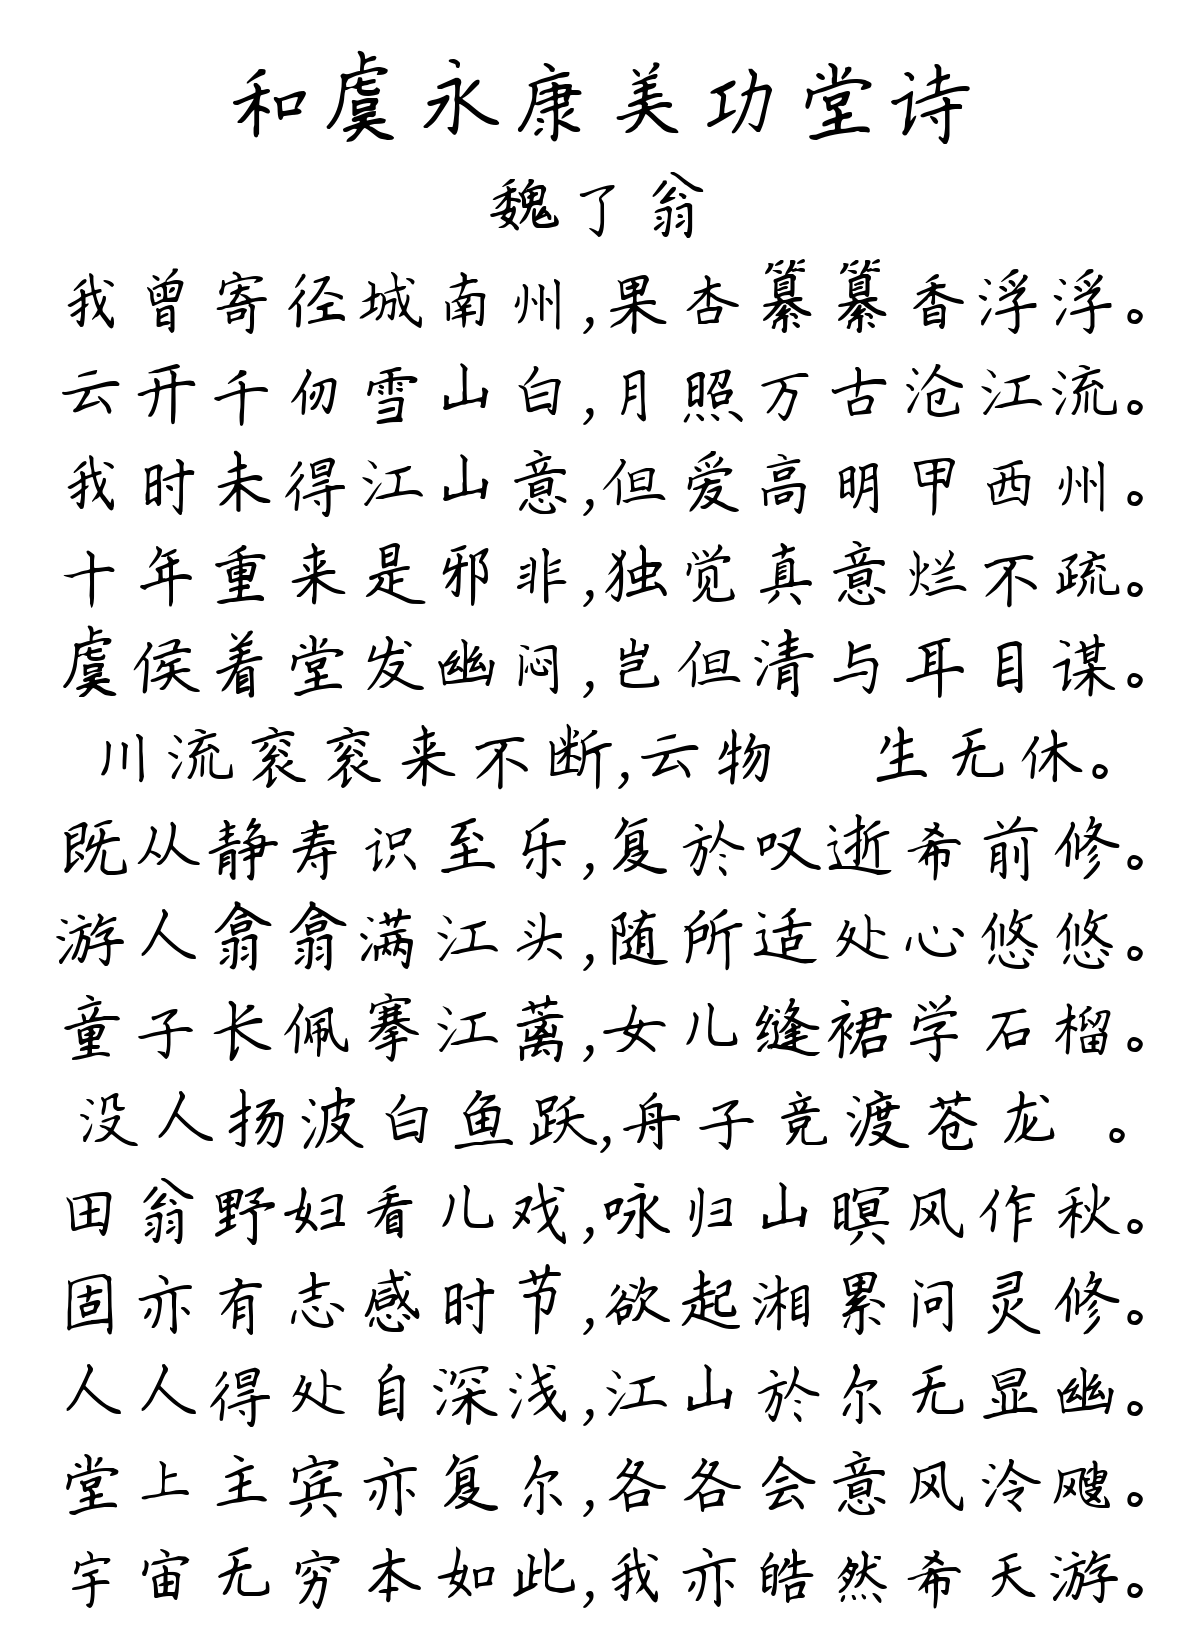 和虞永康美功堂诗
魏了翁
我曾寄径城南州,果杏纂纂香浮浮。
云开千仞雪山白,月照万古沧江流。
我时未得江山意,但爱高明甲西州。
十年重来是邪非,独觉真意烂不疏。
虞侯着堂发幽闷,岂但清与耳目谋。
川流衮衮来不断,云物 生无休。
既从静寿识至乐,复於叹逝希前修。
游人翕翕满江头,随所适处心悠悠。
童子长佩搴江蓠,女儿缝裙学石榴。
没人扬波白鱼跃,舟子竞渡苍龙 。
田翁野妇看儿戏,咏归山暝风作秋。
固亦有志感时节,欲起湘累问灵修。
人人得处自深浅,江山於尔无显幽。
堂上主宾亦复尔,各各会意风泠飕。
宇宙无穷本如此,我亦皓然希天游。